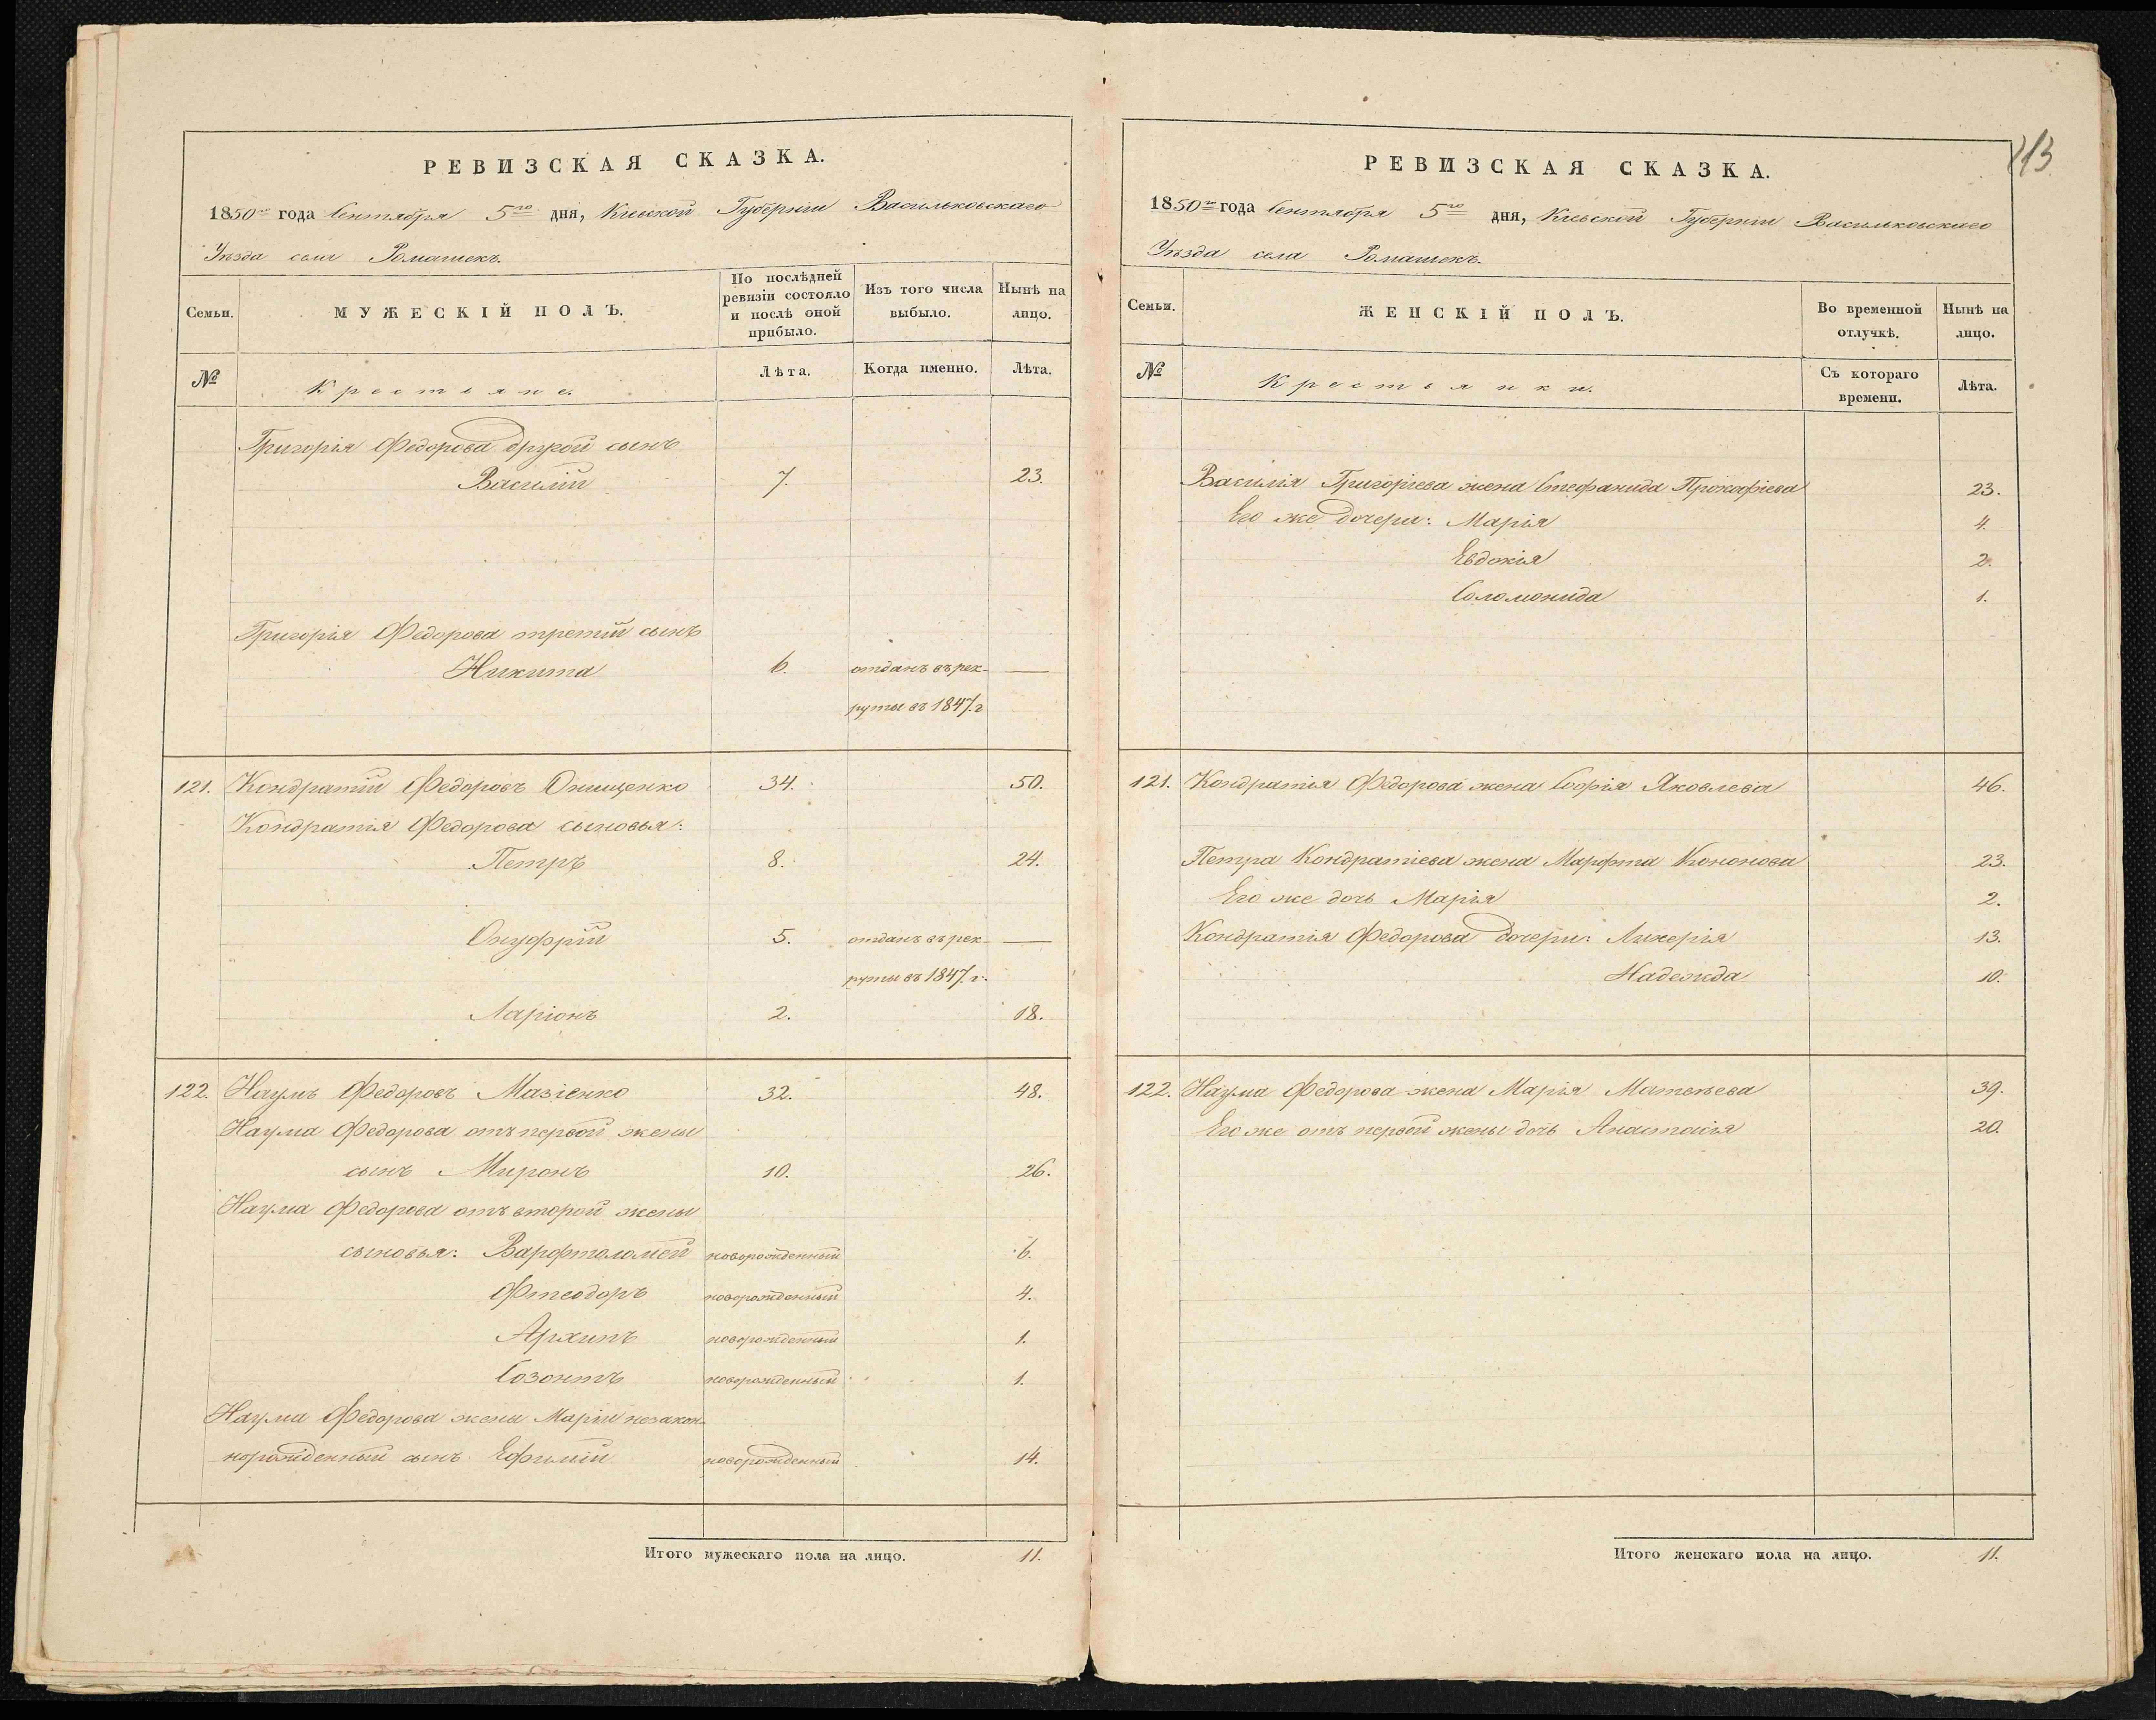 РЕВИЗСКАЯ СКАЗКА.
1850го года Сентября 5го дня, Кіевской Губерніи Васильковскаго
Уѣзда села Ромашекъ.
Семьи.
МУЖЕСКІЙ ПОЛЪ.
По послѣдней ревизіи состояло и послѣ оной прибыло.
Изъ того числа выбыло.
Нынѣ на лицо.
№
Крестьяне.
Лѣта.
Когда именно.
Лѣта.
Григорія Федорова другой сынъ
Василій 7. 23.
Григорія Федорова третій сынъ
Никита 6. отданъ въ рек- —
руты въ 1847. г
121. Кондратій Федоровъ Онищенко 34. 50.
Кондратія Федорова сыновья:
Петръ 8. 24.
Онуфрій 5. отданъ въ рек- —
руты въ 1847. г.
Ларіонъ 2. 18.
122. Наумъ Федоровъ Мазіенко 32. 48.
Наума Федорова отъ первой жены
сынъ Миронъ 10. 26.
Наума Федорова отъ второй жены
сыновья: Варфтоломей новорожденный 6.
Фтеодоръ новорожденный 4.
Архипъ новорожденный 1.
Созонтъ новорожденный 1.
Наума Федорова жены Маріи незакон-
норожденный сынъ Ефимій новорожденный 14.
Итого мужескаго пола на лицо. 11.
113
РЕВИЗСКАЯ СКАЗКА.
1850го года Сентября 5го дня, Кіевской Губерніи Васильковскаго
Уѣзда села Ромашекъ.
Семьи.
ЖЕНСКІЙ ПОЛЪ.
Во временной отлучкѣ.
Нынѣ на лицо.
№
Крестьянки.
Съ котораго времени.
Лѣта.
Василія Григоріева жена Стефанида Прокофіева 23.
Его же дочери: Марія 4.
Евдокія 2.
Соломонида 1.
121. Кондратія Федорова жена Софія Яковлева 46.
Петра Кондратіева жена Марфта Кононова 23.
Его же дочь Марія 2.
Кондратія Федорова дочери: Ликерія 13.
Надежда 10.
122. Наума Федорова жена Марія Матвѣева 39.
Его же отъ первой жены дочь Анастасія 20.
Итого женскаго пола на лицо. 11.